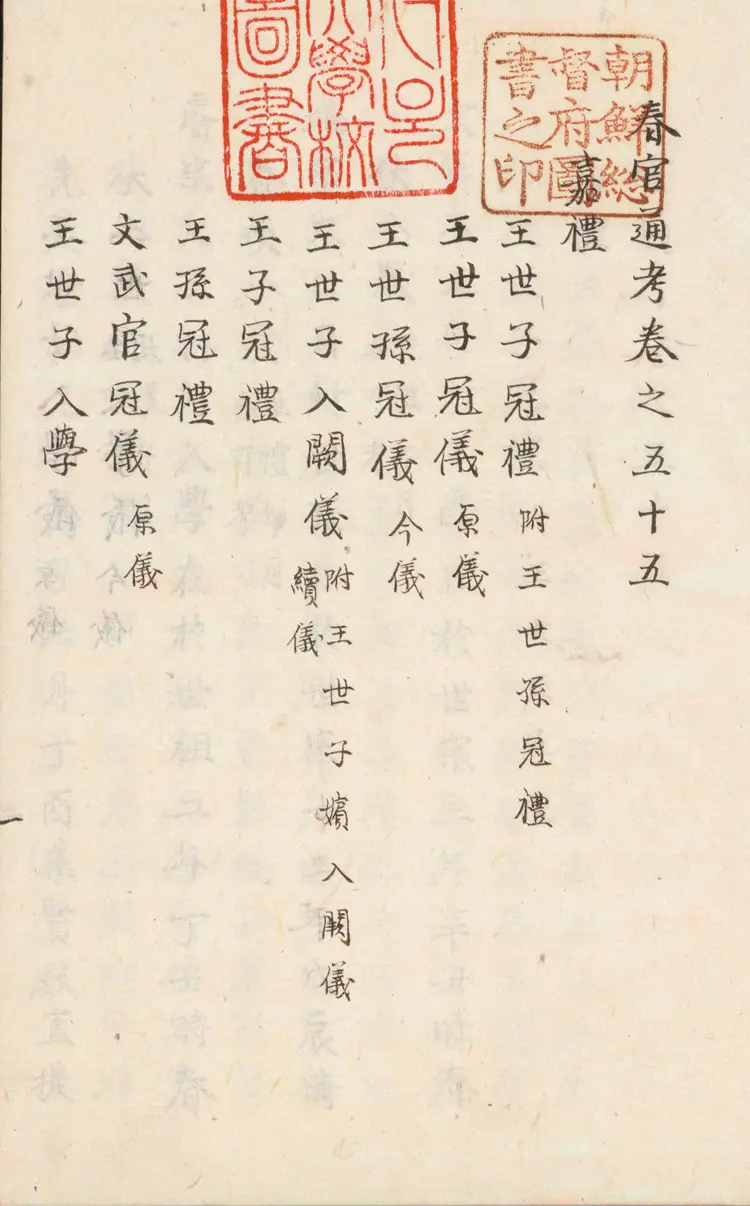 春官通考卷之五十五
嘉禮
王世子冠禮 附王世孫冠禮
王世子冠儀 原儀
王世孫冠儀 今儀
王世子入闕儀 附王世子嬪入闕儀
續儀
王子冠禮
王孫冠禮
文武官冠儀 原儀
王世子入學
朝鮮總
督府圖
書之印
大學校
圖書